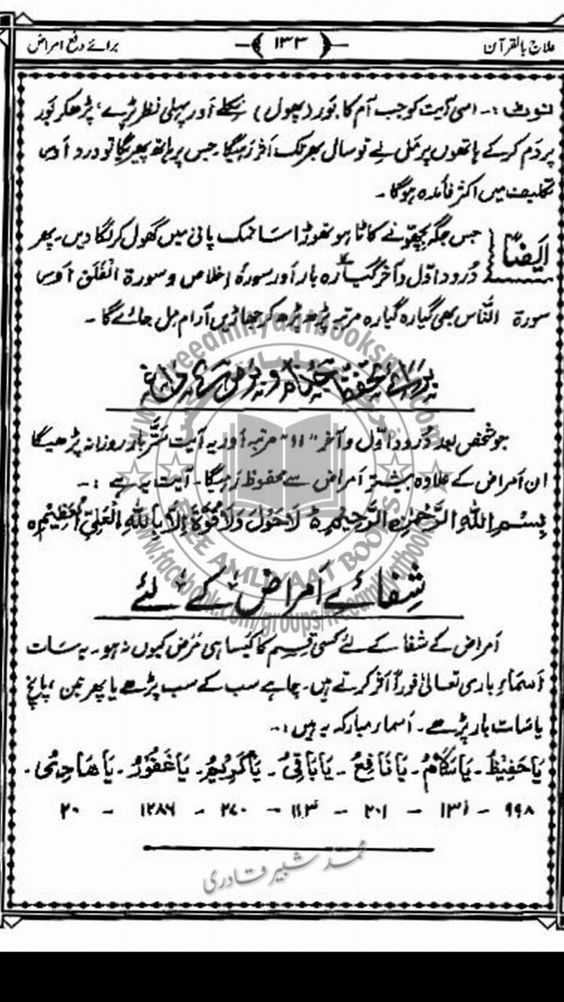 علاج بالقرآن
۱۳۳
برائے دفع امراض
نوٹ:۔ اسی آیت کو جب آم کا بَور (پھول) نکلے اَور پہلی نظر پڑے، پڑھکر بَور
پر دَم کر کے ہاتھوں پر مَل لے تو سال بھر تک اَثر رہیگا۔ جس پر ہاتھ پھیریگا تو درد اَور
تکلیف میں اکثر فائدہ ہوگا۔
اَیضًا جس جگہ بچھو نے کاٹا ہو تھوڑا سا نمک پانی میں گھول کر لگا دیں۔ پھر
دُرود اوّل و آخر گیارہ بار اَور سورۂ اِخلاص و سورۃ الْفَلَق اَور
سورۃ النَّاس بھی گیارہ گیارہ مرتبہ پڑھ پڑھ کر جھاڑیں آرام مل جائے گا۔
برائے تحفظ جذام و برص
جو شخص بعد دُرود اوّل و آخر "۱۱" مرتبہ اَور یہ آیت سَتَّر بار روزانہ پڑھیگا
ان اَمراض کے علاوہ بیشتر اَمراض سے محفوظ رَہیگا۔ آیت یہ ہے :۔
بِسْمِ اللهِ الرَّحْمٰنِ الرَّحِيْمِ لَاحَوْلَ وَلَاقُوَّةَ اِلَّا بِاللهِ الْعَلِيِّ الْعَظِيْمِ
شِفائے اَمراض کے لئے
اَمراض کے شفا کے لئے کسی قِسم کا کیسا ہی مَرَض کیوں نہ ہو۔ یہ سات
اَسْمَاءِ باری تعالیٰ فوراً اَثر کرتے ہیں۔ چاہے سب کے سب پڑھے یا پھر تین، پانچ
یا سَات بار پڑھے۔ اَسماء مبارکہ یہ ہیں:۔
يَاحَفِيْظُ۔ يَاسَلَامُ۔ يَا نَافِعُ۔ يَابَاقِیُ۔ يَاكَرِيْمُ۔ يَاغَفُوْرُ۔ يَاهَادِیُ۔
۹۹۸ – ۱۳۱ – ۲۰۱ – ۱۱۳ – ۲۷۰ – ۱۲۸۶ – ۲۰
محمد شبیر قادری
www.freeamliyatbooks
FREE AMLIYAAT BOOKS
www.facebook.com/groups/freeamliyatbooks